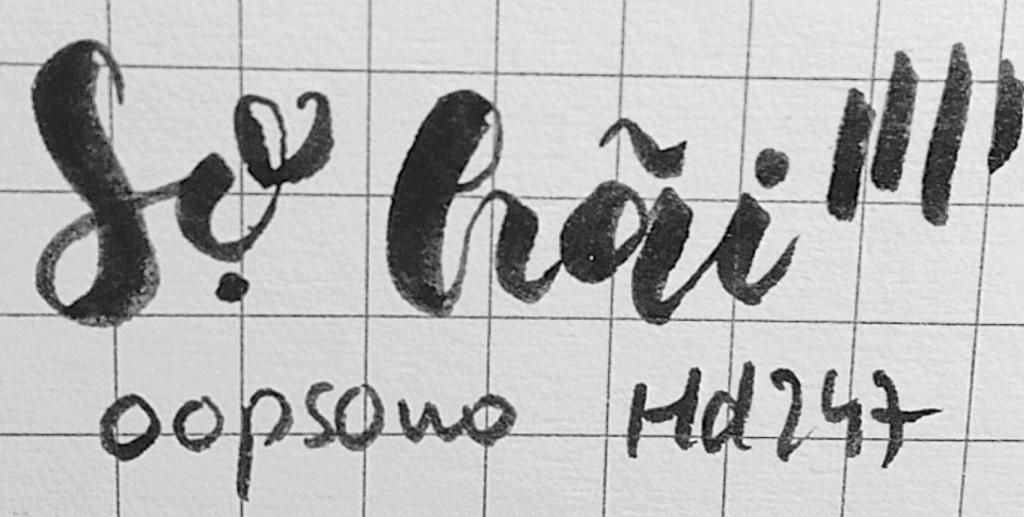 Sợ hãi
oopsono Hd247